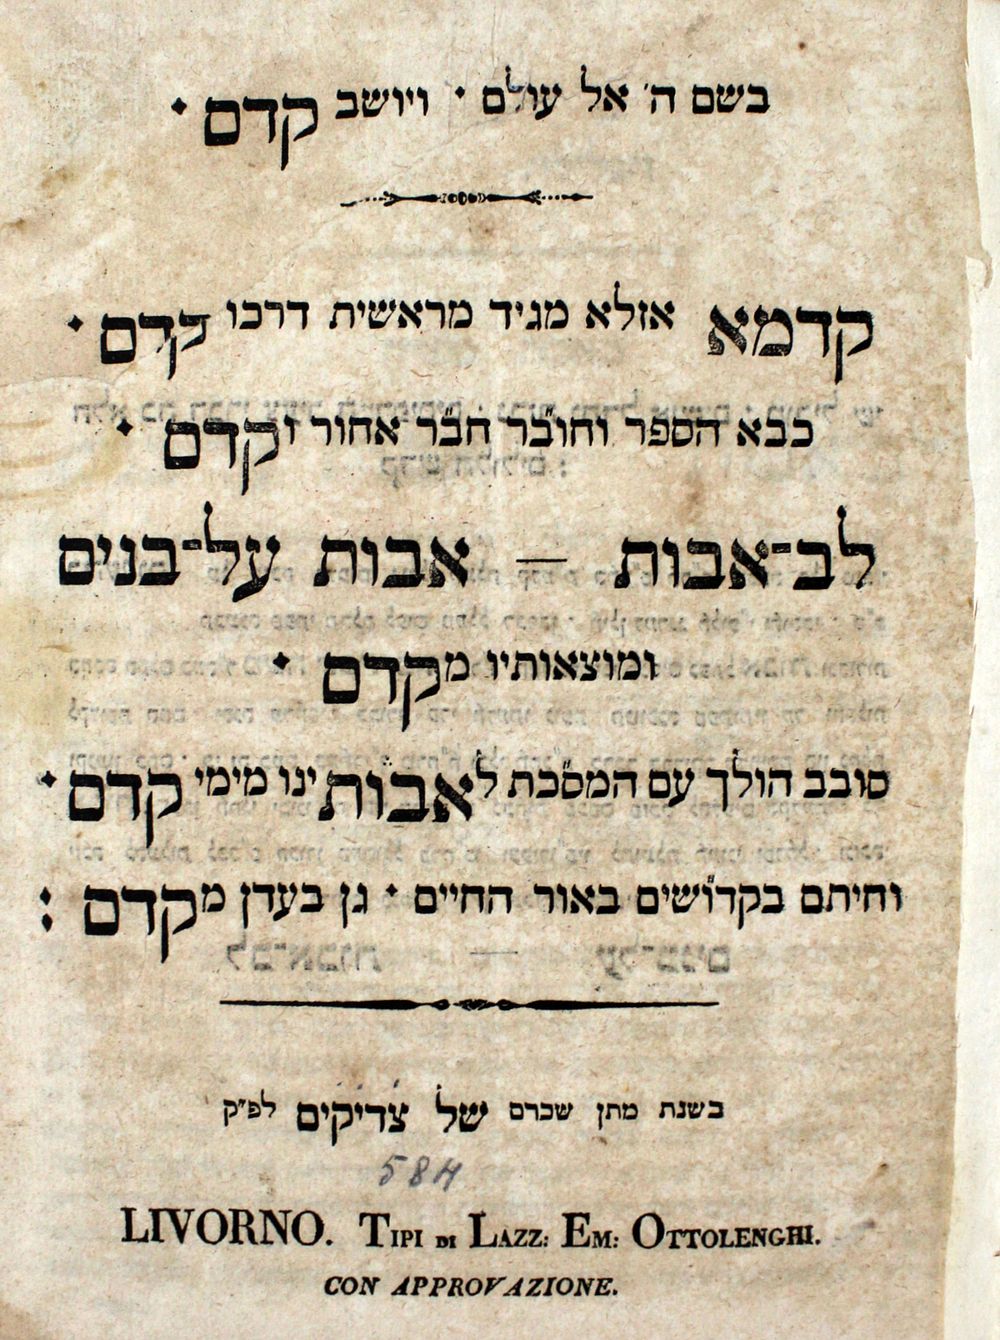 בשם ה׳ אל עולם • ויושב קדם •
קדמא אזלא מגיד מראשית דרכו קדם •
כבא הספר וחוב״ר חב״ר אחור וקדם •
לב־אבות — אבות על־בנים
ומוצאותיו מקדם •
סובב הולך עם המס״כת לאבותינו מימי קדם •
וחיתם בקדו״שים באור החיים • גן בעדן מקדם :
בשנת מתן שכרם של צדיקים לפ״ק
584
LIVORNO. TIPI DI LAZZ: EM: OTTOLENGHI.
CON APPROVAZIONE.